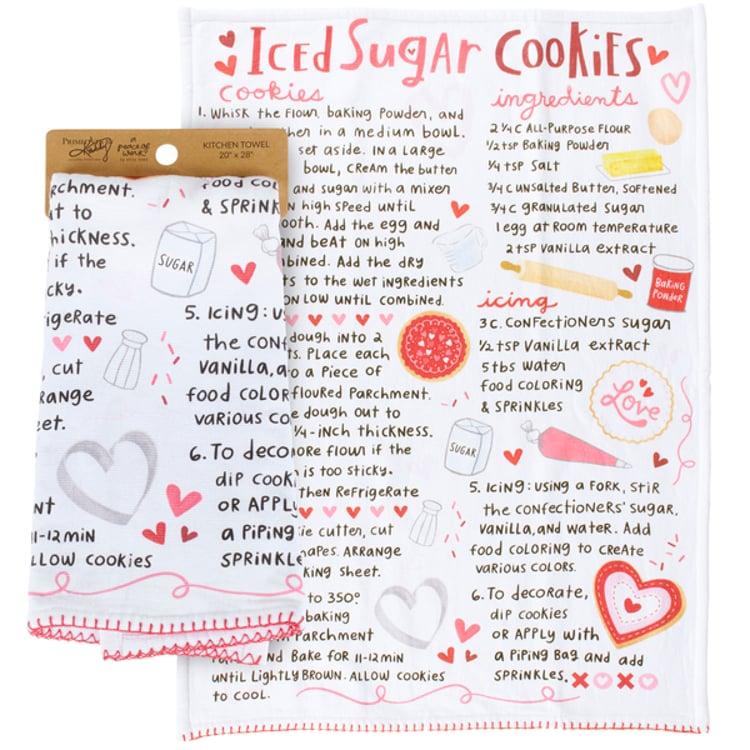 Iced Sugar Cookies
cookies
1. Whisk the flour, baking powder, and
in a medium bowl.
set aside. In a large
bowl, cream the butter
and sugar with a mixer
high speed until
Add the egg and
and beat on high
Add the dry
to the wet ingredients
on low until combined.
dough into 2
Place each
a piece of
floured parchment.
dough out to
1/4-inch thickness.
more flour if the
is too sticky.
then refrigerate
cutter, cut
Arrange
sheet.
to 350°
baking
parchment
and bake for 11-12 min
until lightly brown. Allow cookies
to cool.
ingredients
2 1/4 c all-purpose flour
1/2 tsp baking powder
1/4 tsp salt
3/4 c unsalted butter, softened
3/4 c granulated sugar
1 egg at room temperature
2 tsp vanilla extract
Baking
Powder
icing
3 c. confectioners sugar
1/2 tsp vanilla extract
5 tbs water
food coloring
& sprinkles
Love
SUGAR
5. Icing: using a fork, stir
the confectioners' sugar,
vanilla, and water. Add
food coloring to create
various colors.
6. To decorate,
dip cookies
or apply with
a piping bag and add
sprinkles.
Primitives by Kathy
a peace of work
KITCHEN TOWEL
20" x 28"
to
if the
cut
11-12 min
cookies
& sprink
SUGAR
5. Icing:
the
vanilla, a
food color
various co
6. To deco
dip cook
or apply
a piping
sprinkle